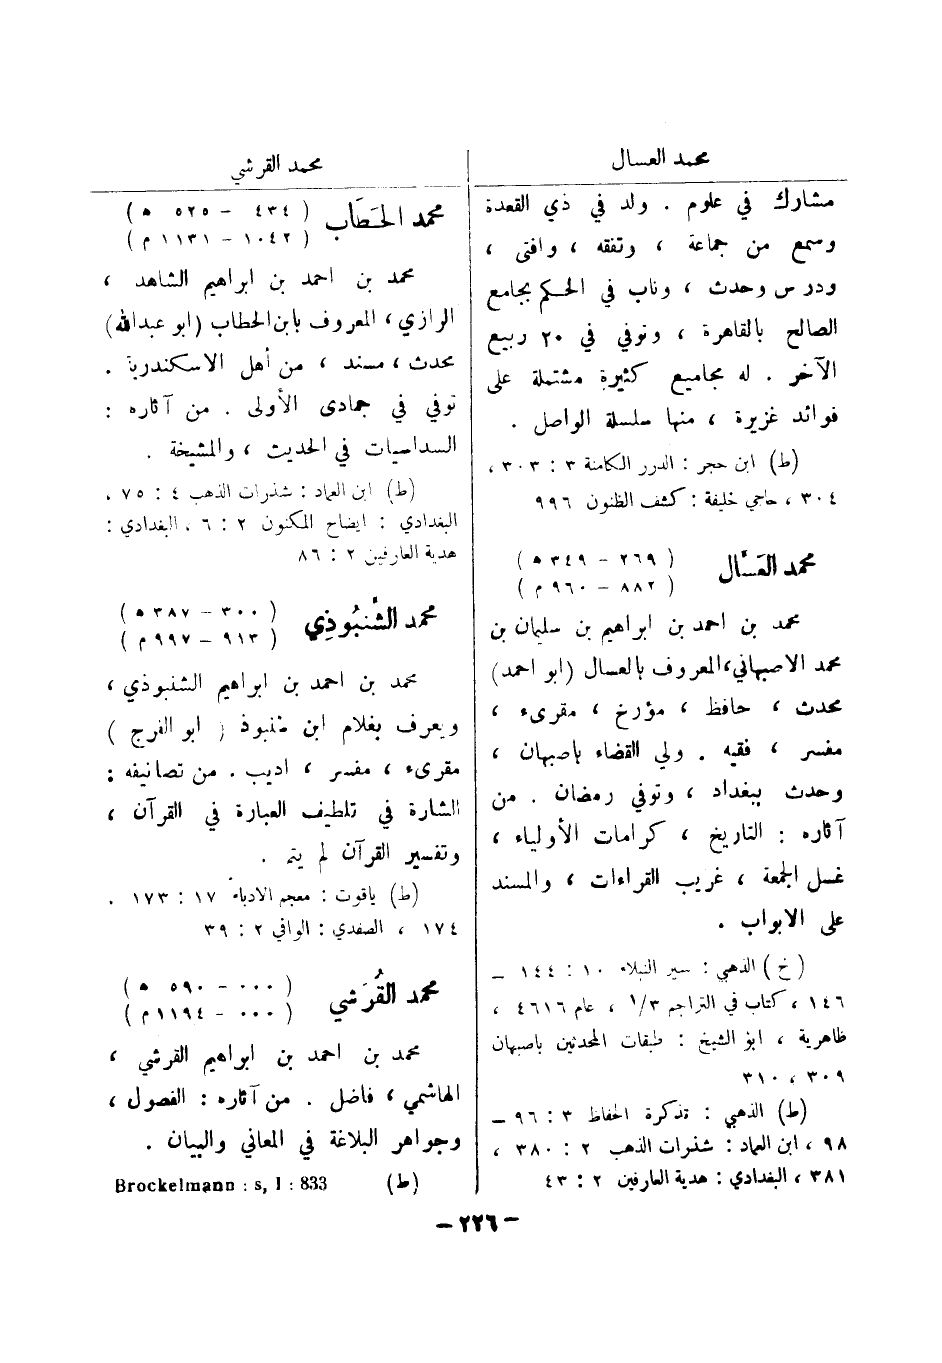 محمد العسال
مشارك في علوم . ولد في ذي القعدة
وسمع من جماعة ، وتفقه ، وافتى ،
ودرس وحدث ، وناب في الحكم بجامع
الصالح بالقاهرة ، وتوفي في ٢٠ ربيع
الآخر . له مجاميع كثيرة مشتملة على
فوائد غزيرة ، منها سلسلة الواصل .
(ط) ابن حجر : الدرر الكامنة ٣ : ٣٠٣ ،
٣٠٤ ، حاجي خليفة : كشف الظنون ٩٩٦
محمد العَسَّال ( ٢٦٩ - ٣٤٩ ه )
( ٨٨٢ - ٩٦٠ م )
محمد بن احمد بن ابراهيم بن سليمان بن
محمد الاصبهاني ، المعروف بالعسال (ابو احمد)
محدث ، حافظ ، مؤرخ ، مقرىء ،
مفسر ، فقيه . ولي القضاء باصبهان ،
وحدث ببغداد ، وتوفي رمضان . من
آثاره : التاريخ ، كرامات الأولياء ،
غسل الجمعة ، غريب القراءات ، والمسند
على الابواب .
(خ) الذهبي : سير النبلاء ١٠ : ١٤٤ -
١٤٦ ، كتاب في التراجم ١/٣ ، عام ٤٦١٦ ،
ظاهرية ، ابو الشيخ : طبقات المحدثين باصبهان
٣٠٩ ، ٣١٠
(ط) الذهبي : تذكرة الحفاظ ٣ : ٩٦ -
٩٨ ، ابن العماد : شذرات الذهب ٢ : ٣٨٠ ،
٣٨١ ، البغدادي : هدية العارفين ٢ : ٤٣
محمد القرشي
محمد الحَطَّاب ( ٤٣٤ - ٥٢٥ ه )
( ١٠٤٢ - ١١٣١ م )
محمد بن احمد بن ابراهيم الشاهد ،
الرازي ، المعروف بابن الحطاب (ابو عبدالله)
محدث ، مسند ، من أهل الاسكندرية .
توفي في جمادى الأولى . من آثاره :
السداسيات في الحديث ، والمشيخة .
(ط) ابن العماد : شذرات الذهب ٤ : ٧٥ ،
البغدادي : ايضاح المكنون ٢ : ٦ ، البغدادي :
هدية العارفين ٢ : ٨٦
محمد الشَّنَبُوذِي ( ٣٠٠ - ٣٨٧ ه )
( ٩١٣ - ٩٩٧ م )
محمد بن احمد بن ابراهيم الشنبوذي ،
ويعرف بغلام ابن شنبوذ ( ابو الفرج )
مقرىء ، مفسر ، اديب . من تصانيفه :
الشارة في تلطيف العبارة في القرآن ،
وتفسير القرآن لم يتم .
(ط) ياقوت : معجم الادباء ١٧ : ١٧٣ ،
١٧٤ ، الصفدي : الوافي ٢ : ٣٩
محمد القُرَشي ( ٠٠٠ - ٥٩٠ ه )
( ٠٠٠ - ١١٩٤ م )
محمد بن احمد بن ابراهيم القرشي ،
الهاشمي ، فاضل . من آثاره : الفصول ،
وجواهر البلاغة في المعاني والبيان .
(ط) Brockelmann : s, I : 833
- ٢٢٦ -